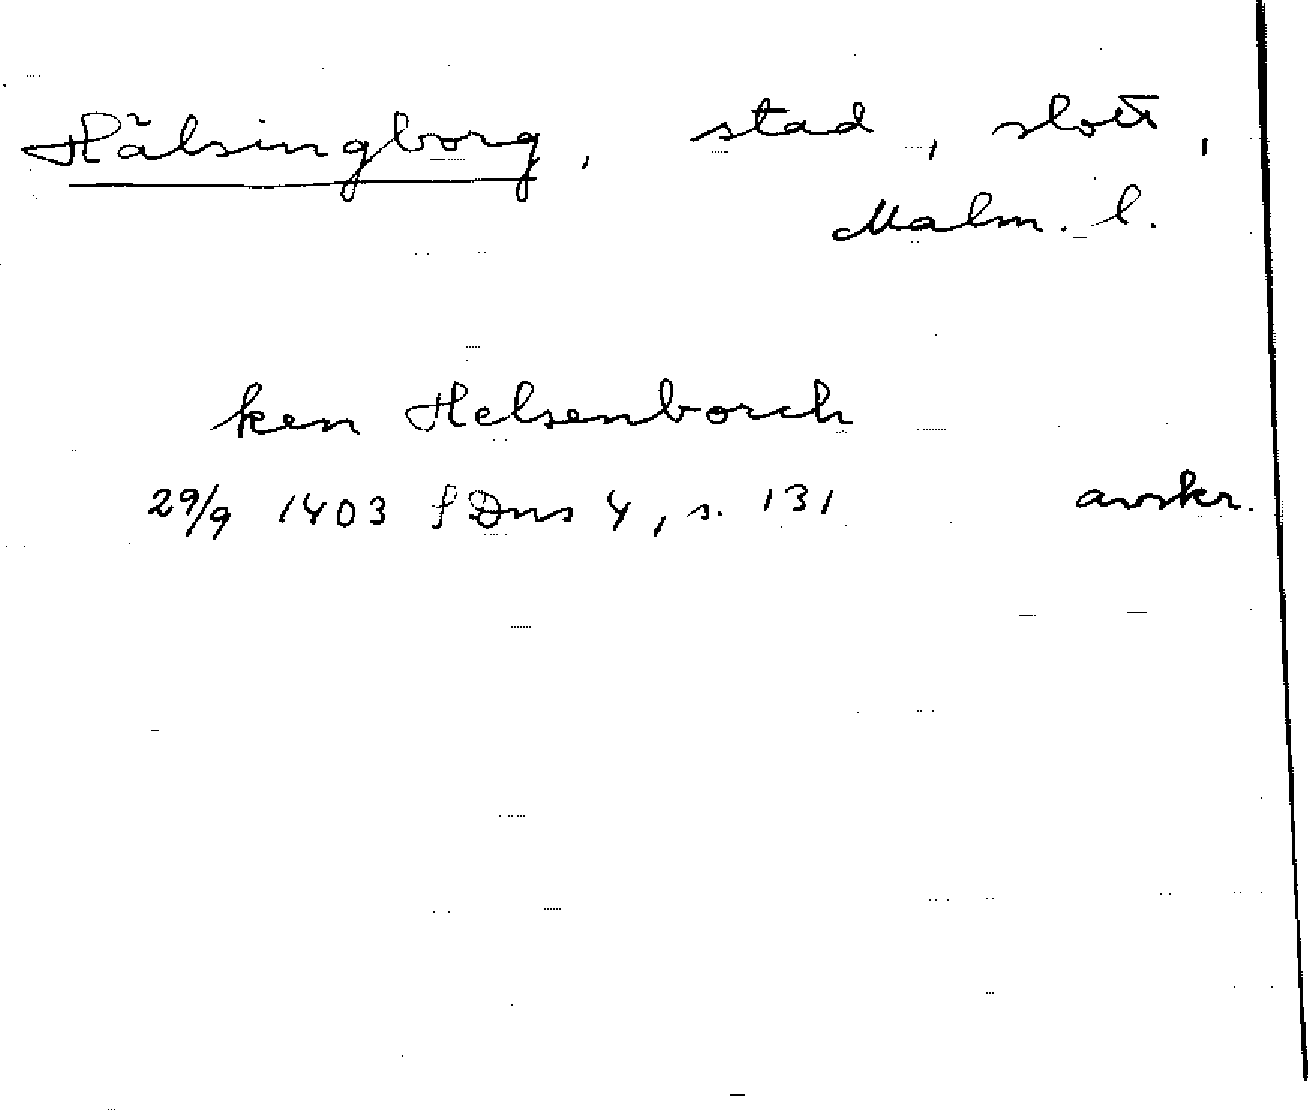 Hälsingborg, stad, slott,
Malm. l.
ken Helsenborch
29/9 1403 SDns 4, s. 131 avskr.